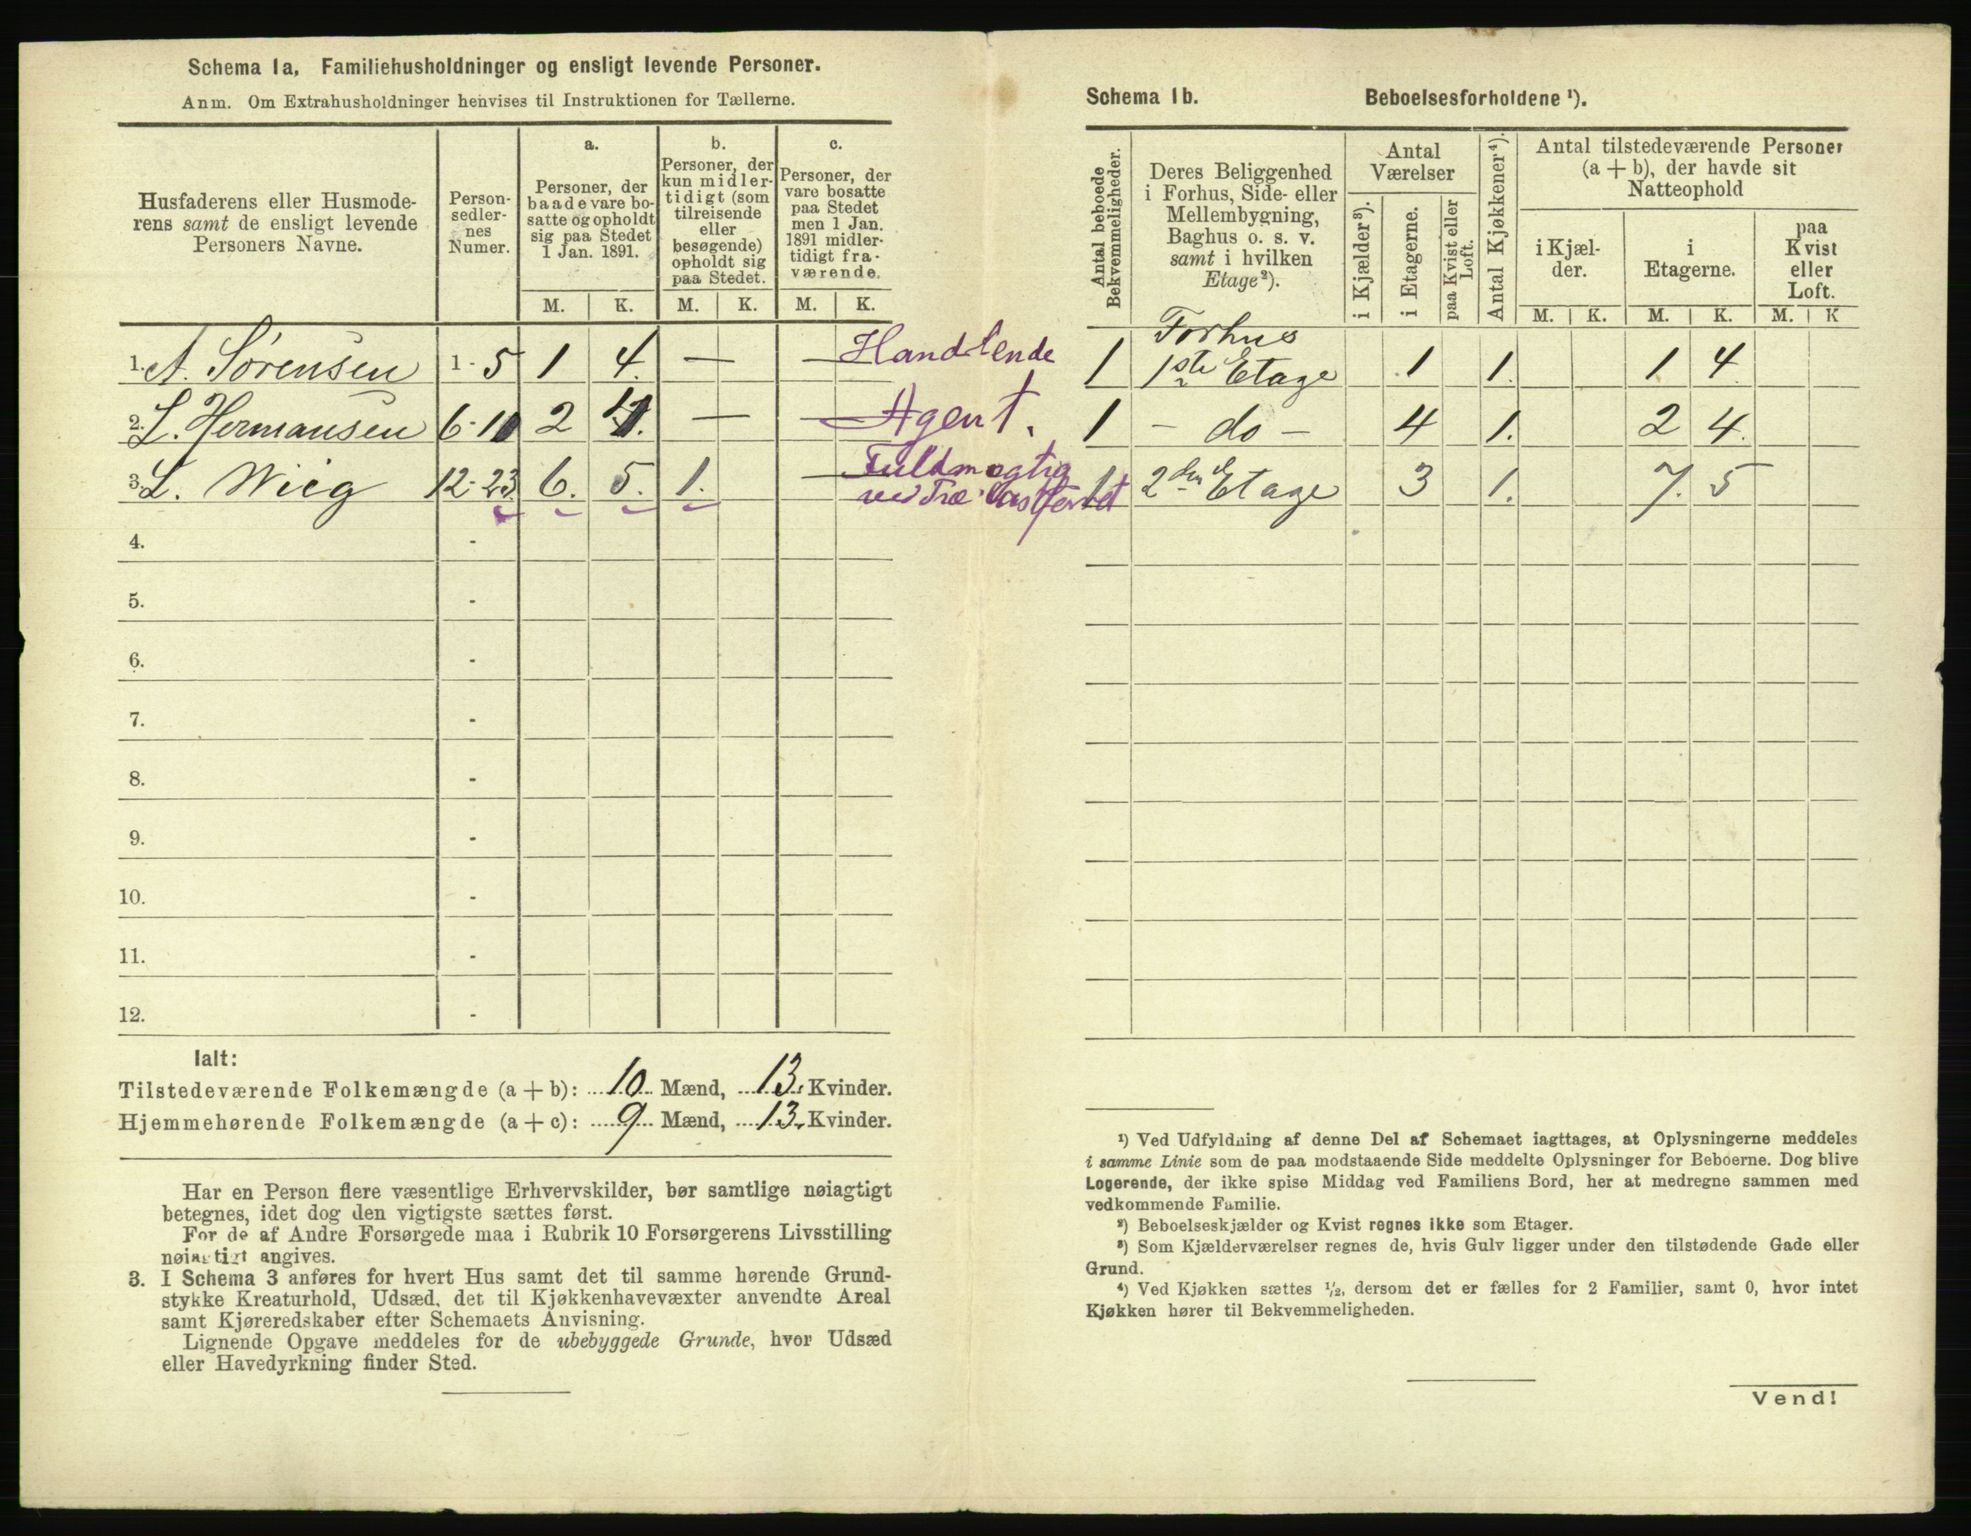 Schema 1a, Familiehusholdninger og ensligt levende Personer.
Anm. Om Extrahusholdninger henvises til Instruktionen for Tællerne.
Husfaderens eller Husmode-
rens samt de ensligt levende
Personers Navne.
Person-
sedler-
nes
Numer.
a.
Personer, der
baade vare bo-
satte og opholdt
sig paa Stedet
1 Jan. 1891.
b.
Personer, der
kun midler-
tidigt (som
tilreisende
eller
besøgende)
opholdt sig
paa Stedet.
c.
Personer, der
vare bosatte
paa Stedet
men 1 Jan.
1891 midler-
tidigt fra-
værende.
M. K. M. K. M. K.
1. A. Sørensen 1 - 5 1 4. — — Handlende
2. L. Hermansen 6 - 11 2 4. — — Agent.
3. L. Wieg 12 - 23 6. 5. 1. — Fuldmægtig
ved
4. -
5. -
6. -
7. -
8. -
9. -
10. -
11. -
12. -
Ialt:
Tilstedeværende Folkemængde (a + b): 10 Mænd, 13. Kvinder.
Hjemmehørende Folkemængde (a + c): 9 Mænd, 13. Kvinder.
Har en Person flere væsentlige Erhvervskilder, bør samtlige nøiagtigt
betegnes, idet dog den vigtigste sættes først.
For de af Andre Forsørgede maa i Rubrik 10 Forsørgerens Livsstilling
nøiagtigt angives.
3. I Schema 3 anføres for hvert Hus samt det til samme hørende Grund-
stykke Kreaturhold, Udsæd, det til Kjøkkenhavevæxter anvendte Areal
samt Kjøreredskaber efter Schemaets Anvisning.
Lignende Opgave meddeles for de ubebyggede Grunde, hvor Udsæd
eller Havedyrkning finder Sted.
Schema 1b. Beboelsesforholdene ¹).
Antal beboede
Bekvemmeligheder.
Deres Beliggenhed
i Forhus, Side- eller
Mellembygning,
Baghus o. s. v.
samt i hvilken
Etage ²).
Antal
Værelser
i Kjælder ³).
i Etagerne.
paa Kvist eller
Loft.
Antal Kjøkkener ⁴).
Antal tilstedeværende Personer
(a + b), der havde sit
Natteophold
i Kjæl-
der.
i
Etagerne.
paa
Kvist
eller
Loft.
M. K. M. K. M. K
Forhus
1 1ste Etage 1 1. 1. 4.
1 - do - 4 1. 2 4.
1 2den Etage 3 1. 7. 5
¹) Ved Udfyldning af denne Del af Schemaet iagttages, at Oplysningerne meddeles
i samme Linie som de paa modstaaende Side meddelte Oplysninger for Beboerne. Dog blive
Logerende, der ikke spise Middag ved Familiens Bord, her at medregne sammen med
vedkommende Familie.
²) Beboelseskjælder og Kvist regnes ikke som Etager.
³) Som Kjælderværelser regnes de, hvis Gulv ligger under den tilstødende Gade eller
Grund.
⁴) Ved Kjøkken sættes ½, dersom det er fælles for 2 Familier, samt 0, hvor intet
Kjøkken hører til Bekvemmeligheden.
Vend!